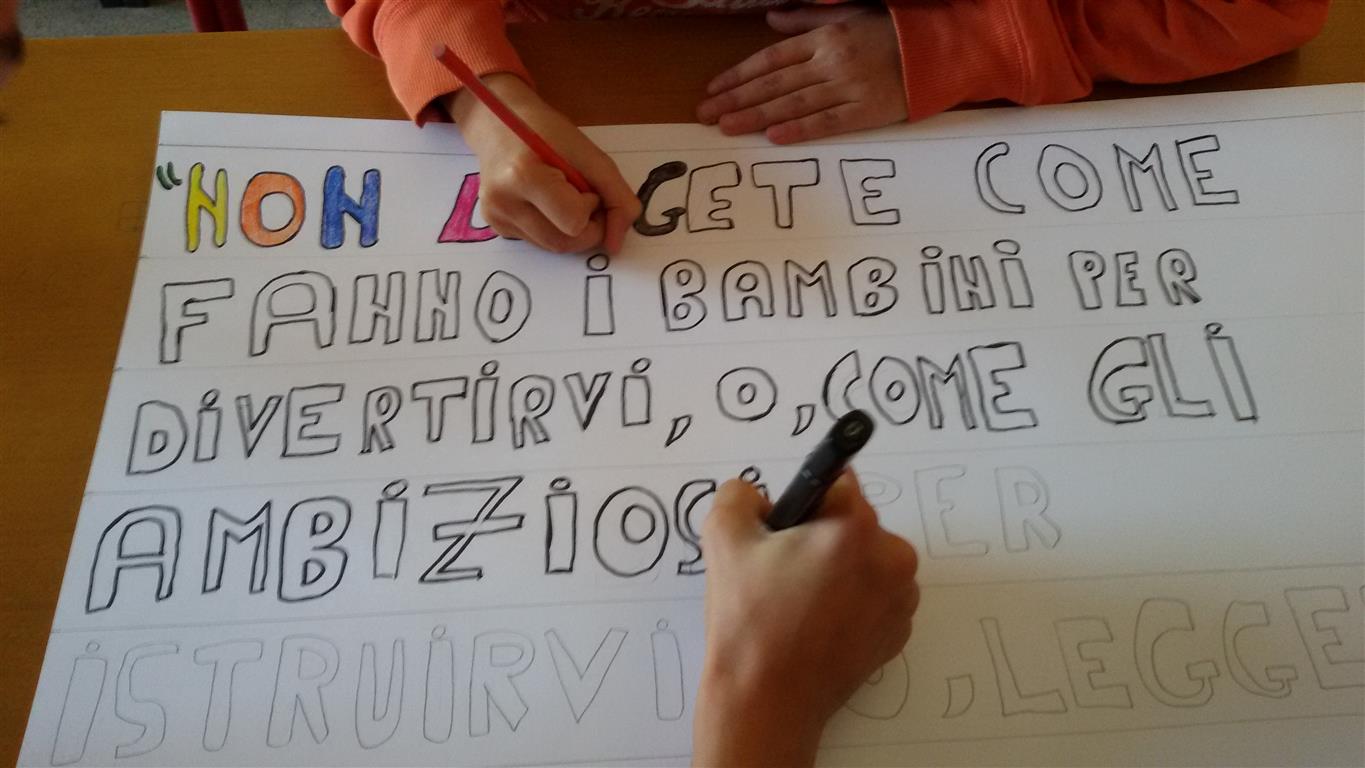 “NON LEGGETE COME
FANNO I BAMBINI PER
DIVERTIRVI, O, COME GLI
AMBIZIOSI PER
ISTRUIRVI O, LEGGE